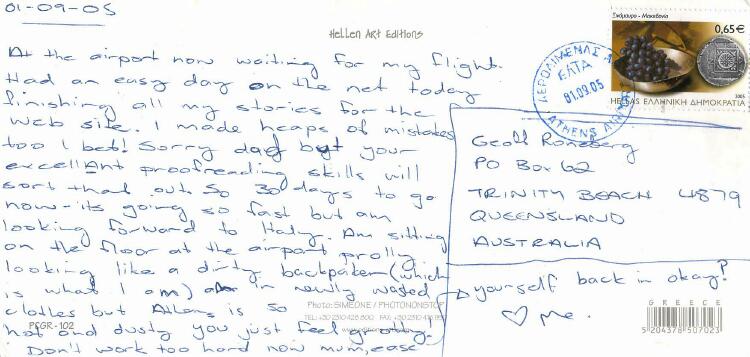 01-09-05
Hellen Art Editions
At the airport now waiting for my flight.
Had an easy day on the net today
finishing all my stories for the
web site. I made heaps of mistakes
too I bet! Sorry dad but your
excellAnt proofreading skills will
sort that out. So 30 days to go
now - its going so fast but am
looking forward to Italy. Am sitting
on the floor at the airport prolly
looking like a dirty backpaker (which
is what I am) in newly washed
clothes but Athens is so
hot and dusty you just feel grotty!
Don't work too hard now mum, ease
yourself back in okay?
♡ me.
Σκόμαυρο - Μακεδονία
0,65€
2005
HELLAS ΕΛΛΗΝΙΚΗ ΔΗΜΟΚΡΑΤΙΑ
ΑΕΡΟΛΙΜΕΝΑΣ
ΕΛΤΑ
01.09.05
ATHENS AIRPORT
Geoff
PO Box 62
TRINITY BEACH 4879
QUEENSLAND
AUSTRALIA
PCGR-102
Photo: SIMEONE / PHOTONONSTOP
GREECE
5204378507023